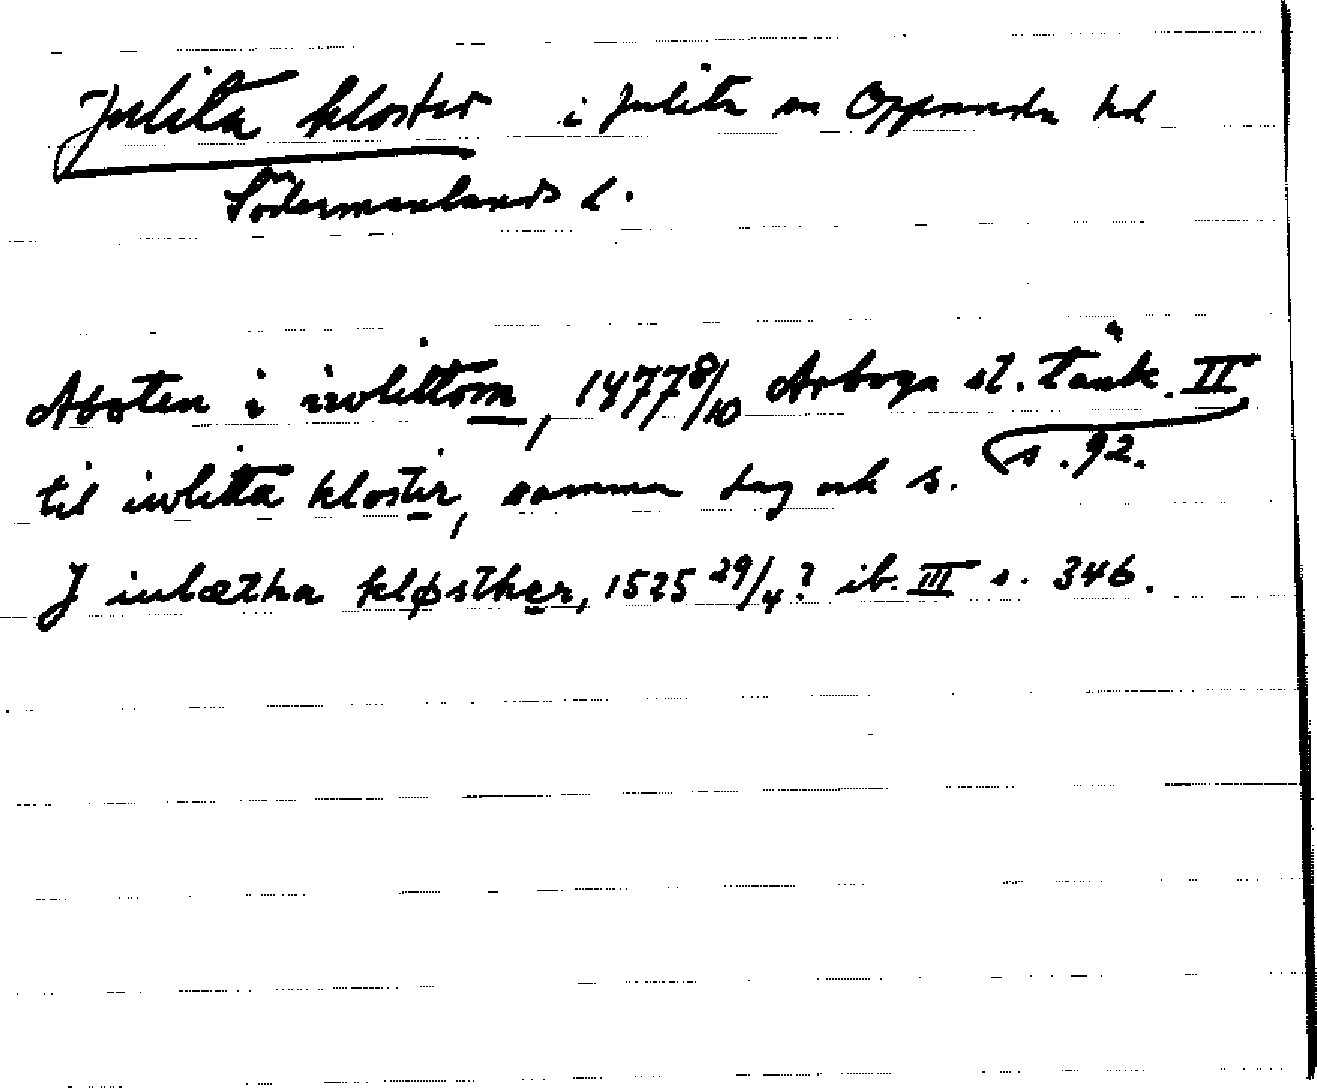 Julita kloster i Julita sn Oppunda hd
Södermanlands l.
Aboten i iwlittom, 1477 8/10 Arboga st. tänk. II
s. 92.
til iwlitta klostir, samma dag och s.
J iulætha kløsther, 1525 29/4? ib. III s. 346.